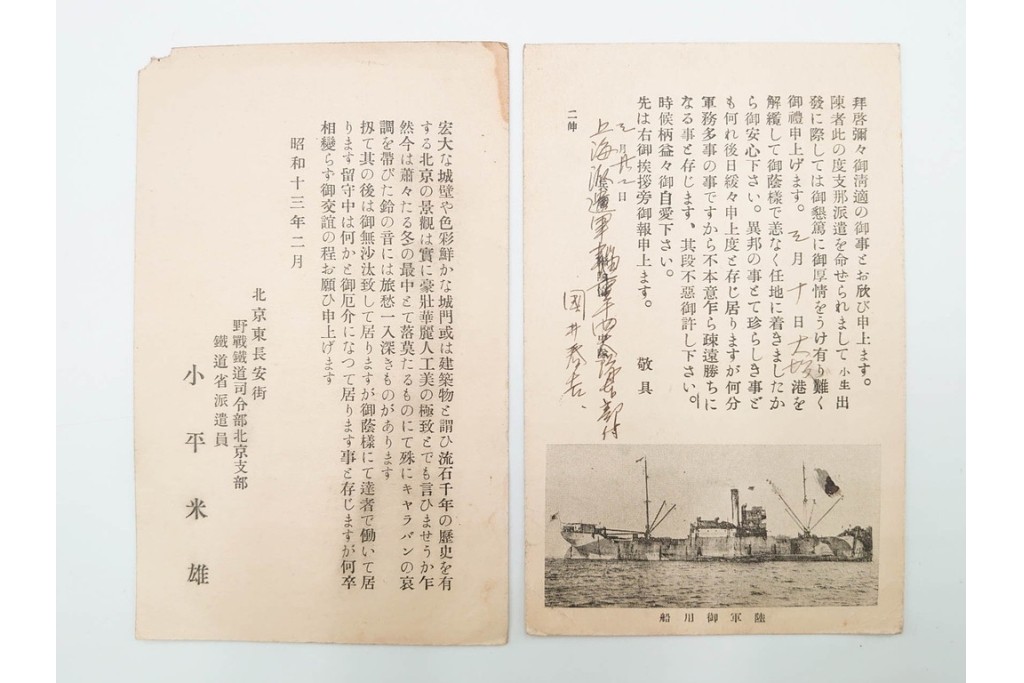 拜啓彌々御淸適の御事とお欣び申上ます。
陳者此の度支那派遣を命せられまして小生出
發に際しては御懇篤に御厚情をうけ有り難く
御禮申上げます。 月十日大坂港を
解纜して御蔭樣で恙なく任地に着きましたか
ら御安心下さい。異邦の事とて珍らしき事ど
も何れ後日緩々申上度と存じ居りますが何分
軍務多事の事ですから不本意乍ら疎遠勝ちに
なる事と存じます、其段不惡御許し下さい。
時候柄益々御自愛下さい。
先は右御挨拶旁御報申上ます。 敬具
月 日
上海派遣軍 部付
國井
二伸
陸軍御用船
宏大な城壁や色彩鮮かな城門或は建築物と謂ひ流石千年の歷史を有
する北京の景觀は實に豪壯華麗人工美の極致とでも言ひませうか乍
然今は蕭々たる冬の最中とて落莫たるものにて殊にキャラバンの哀
調を帶びた鈴の音には旅愁一入深きものがあります
扨て其の後は御無沙汰致して居りますが御蔭樣にて達者で働いて居
ります留守中は何かと御厄介になつて居ります事と存じますが何卒
相變らず御交誼の程お願ひ申上げます
昭和十三年二月
北京東長安街
野戰鐵道司令部北京支部
鐵道省派遣員
小平米雄